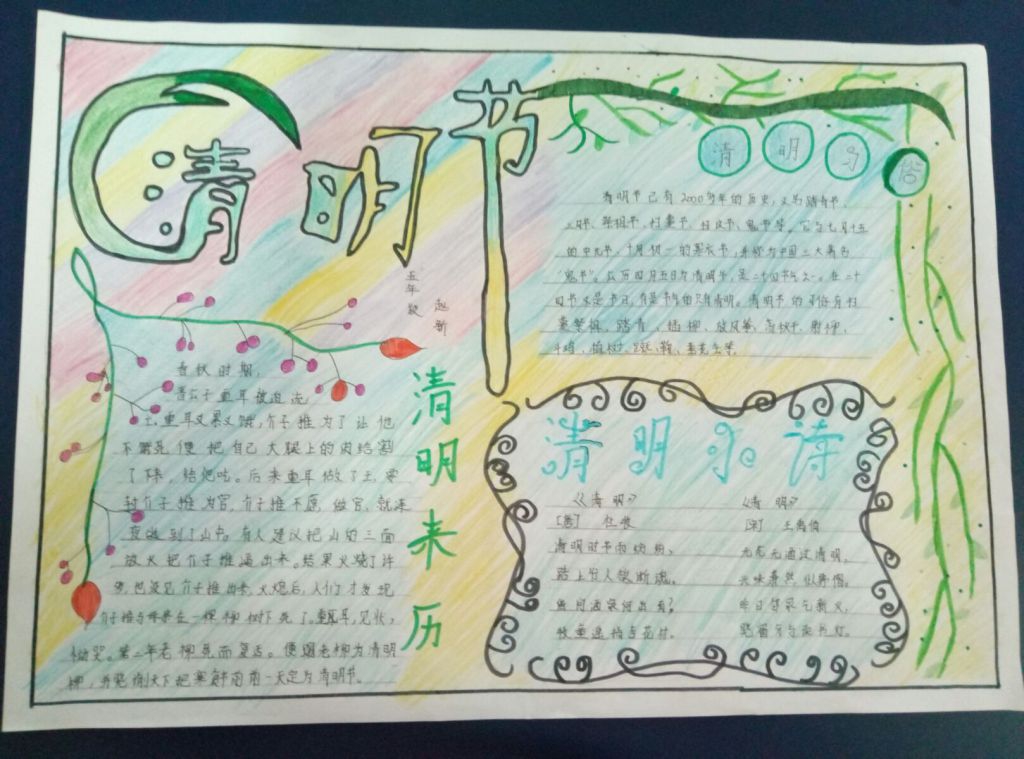 清明节
五年级
赵新
清明来历
春秋时期,
晋公子重耳被迫流
亡,重耳又累又饿,介子推为了让他
不饿死便把自己大腿上的肉给割
了下来,给他吃。后来重耳做了王,要
封介子推为官,介子推不愿做官,就连
夜逃到了山中。有人建议把山的三面
放火把介子推逼出来。结果火烧了许
也没见介子推出来。火熄后,人们才发现
介子推与母亲在一棵柳树下死了。重耳,见状,
恸哭。第二年老柳死而复活。便赐老柳为清明
柳,并昭倒天下把寒食节的前一天定为清明节。
清明习俗
清明节已有2000多年的历史,又为踏青节、
三月节、祭祖节、扫墓节、扫坟节、鬼节等。它与七月十五
的中元节,十月初一的寒衣节,并称为中国三大著名
“鬼节”。公历四月五日为清明节,是二十四节气之一。在二十
四节气是节日,有是节气的只有清明。清明节的习俗有扫
墓祭祖、踏青、插柳、放风筝、荡秋千、射柳、
斗鸡、植树、蹴鞠、蚕花会等
清明小诗
《清明》
[唐] 杜牧
清明时节雨纷纷,
路上行人欲断魂。
借问酒家何处有?
牧童遥指杏花村。
《清明》
[宋] 王禹偁
无花无酒过清明,
兴味萧然似野僧。
昨日邻家乞新火,
晓窗分与读书灯。